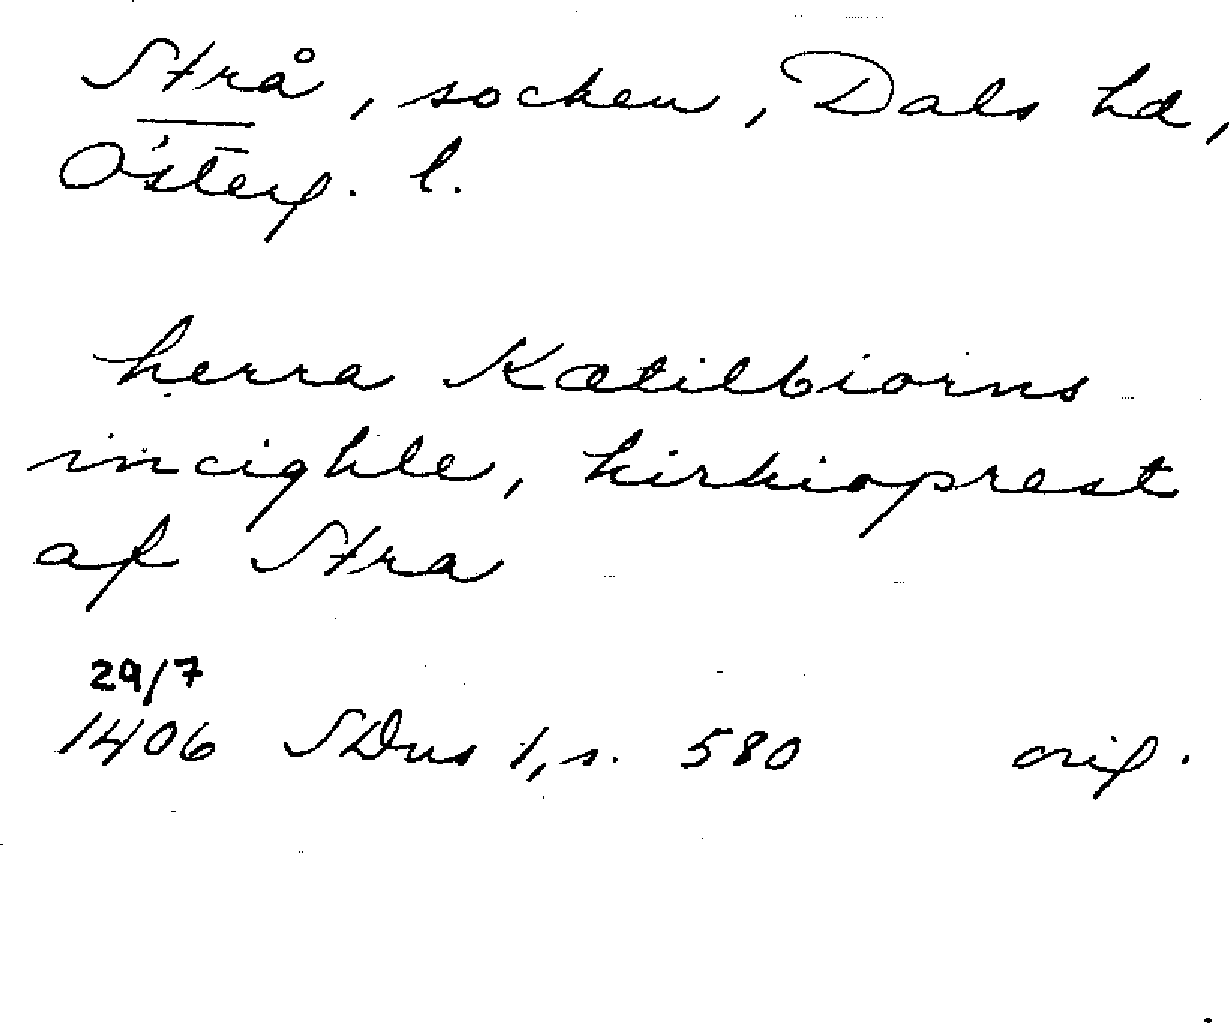 Strå, socken, Dals hd,
Österg. l.
herra Kætilbiorns
incighle, kirkioprest
af Stra
29/7
1406 SDns 1, s. 580 orig.